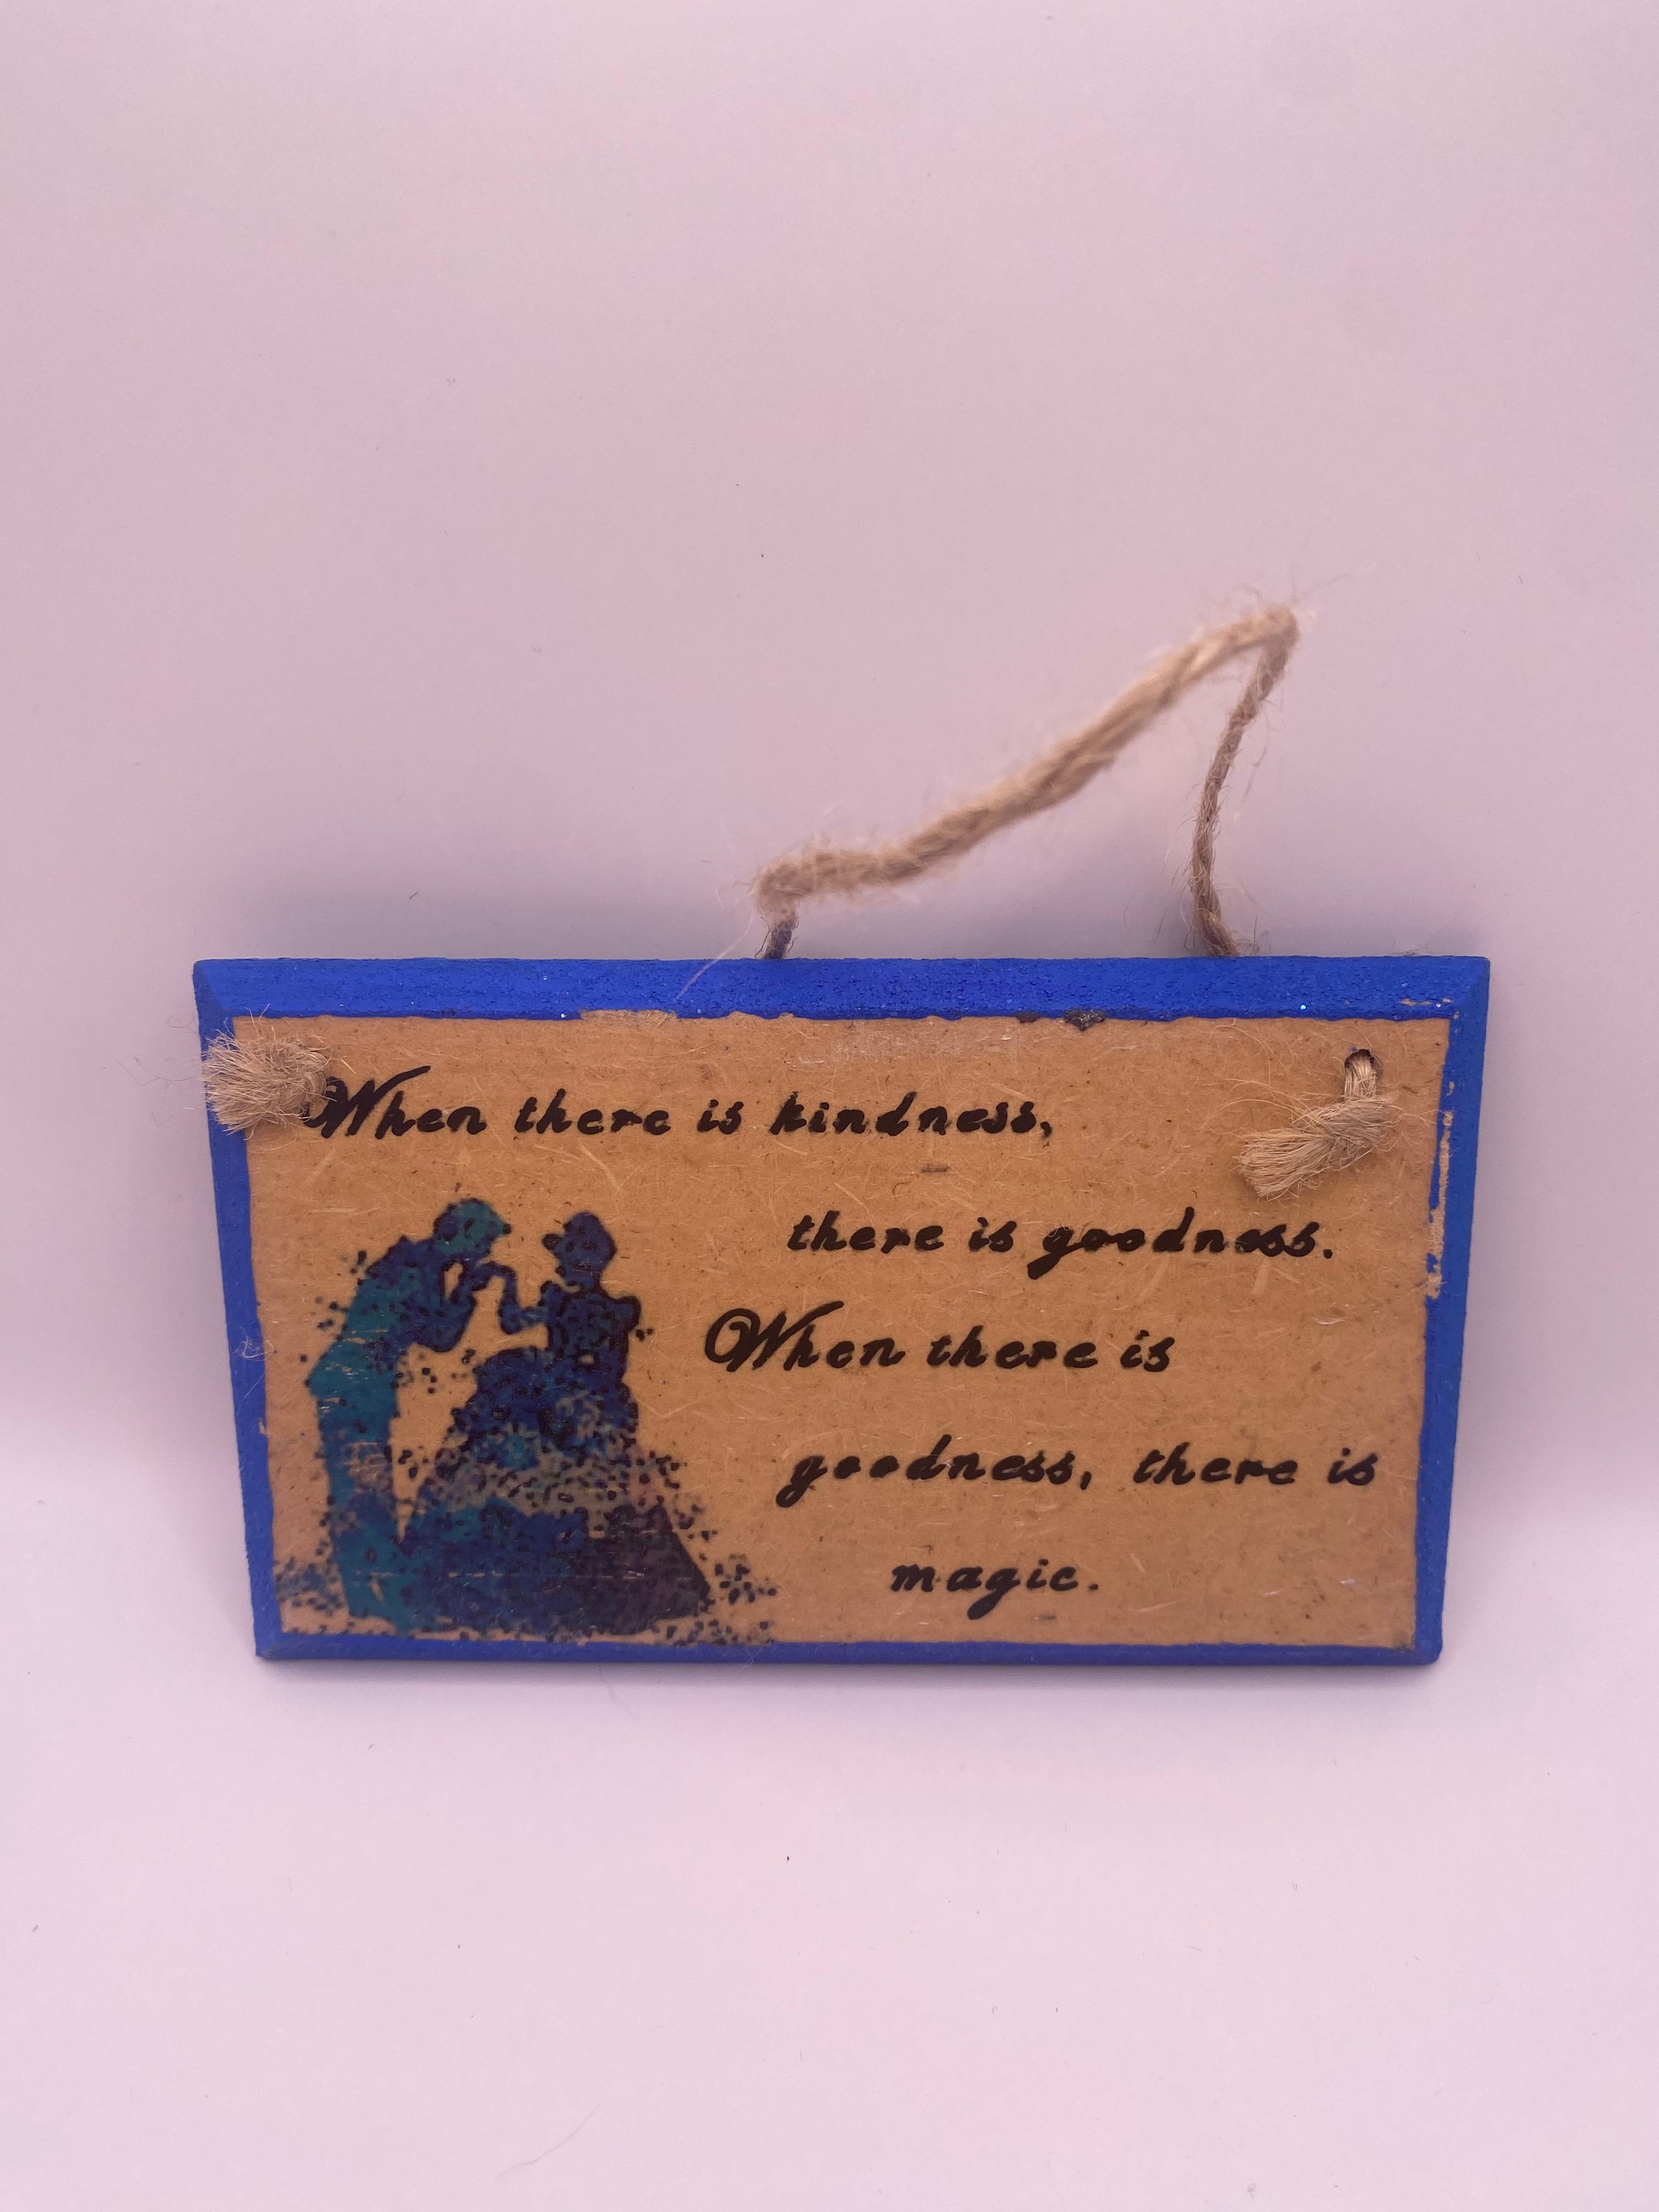 When there is kindness,
there is goodness.
When there is
goodness, there is
magic.